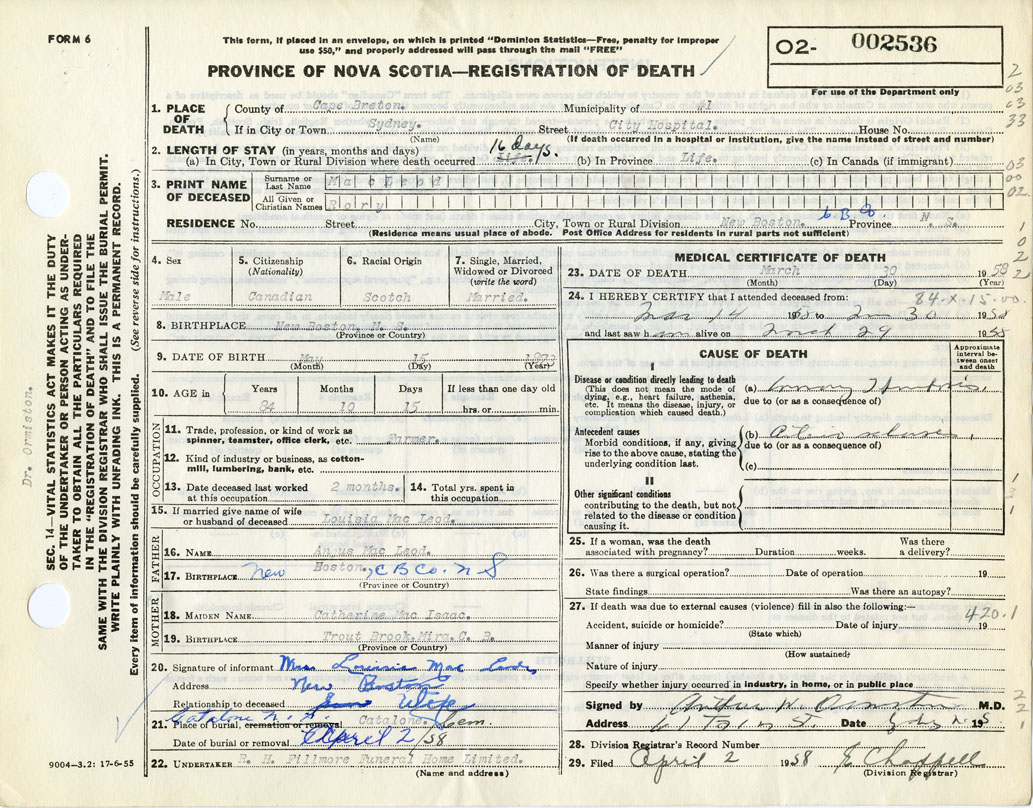 FORM 6
This form, if placed in an envelope, on which is printed "Dominion Statistics—Free, penalty for improper
use $50," and properly addressed will pass through the mail "FREE"
PROVINCE OF NOVA SCOTIA—REGISTRATION OF DEATH
O2- 002536
For use of the Department only
1. PLACE OF DEATH
County of Cape Breton. Municipality of #1
If in City or Town Sydney. Street City Hospital. House No.
(Name) (If death occurred in a hospital or Institution, give the name instead of street and number)
2. LENGTH OF STAY (in years, months and days)
(a) In City, Town or Rural Division where death occurred 16 days. (b) In Province Life. (c) In Canada (if immigrant)
3. PRINT NAME OF DECEASED
Surname or Last Name MacLeod
All Given or Christian Names Rory
RESIDENCE No. Street City, Town or Rural Division New Boston. C. B. Co. Province N. S.
(Residence means usual place of abode. Post Office Address for residents in rural parts not sufficient)
4. Sex
Male
5. Citizenship
(Nationality)
Canadian
6. Racial Origin
Scotch
7. Single, Married,
Widowed or Divorced
(write the word)
Married.
8. BIRTHPLACE New Boston, N. S.
(Province or Country)
9. DATE OF BIRTH May 15
(Month) (Day) (Year)
10. AGE in
Years Months Days If less than one day old
84 10 15 hrs. or min.
OCCUPATION
11. Trade, profession, or kind of work as
spinner, teamster, office clerk, etc. Farmer.
12. Kind of industry or business, as cotton-
mill, lumbering, bank, etc.
13. Date deceased last worked
at this occupation 2 months.
14. Total yrs. spent in
this occupation
15. If married give name of wife
or husband of deceased Louisia Mac Leod.
FATHER
16. NAME Angus Mac Leod.
17. BIRTHPLACE New Boston, C B Co. N S
(Province or Country)
MOTHER
18. MAIDEN NAME Catherine Mac Isaac.
19. BIRTHPLACE Trout Brook, Mira, C. B.
(Province or Country)
20. Signature of informant Mrs Louisia Mac Leod,
Address New Boston
Relationship to deceased Wife
21. Place of burial, cremation or removal Catalone N. S. Catalone. Cem.
Date of burial or removal April 2/58
22. UNDERTAKER R. H. Fillmore Funeral Home Limited.
(Name and address)
9004—3.2: 17-6-55
MEDICAL CERTIFICATE OF DEATH
23. DATE OF DEATH March 30 1958
(Month) (Day) (Year)
84-X-15-00
24. I HEREBY CERTIFY that I attended deceased from:
Mar 14 1958 to Mar 30 1958
and last saw him alive on March 29 1958
CAUSE OF DEATH
Approximate
interval be-
tween onset
and death
I
Disease or condition directly leading to death
(This does not mean the mode of
dying, e.g., heart failure, asthenia,
etc. It means the disease, injury, or
complication which caused death.)
(a)
due to (or as a consequence of)
Antecedent causes
Morbid conditions, if any, giving
rise to the above cause, stating the
underlying condition last.
(b)
due to (or as a consequence of)
(c)
II
Other significant conditions
contributing to the death, but not
related to the disease or condition
causing it.
25. If a woman, was the death
associated with pregnancy? Duration weeks. Was there
a delivery?
26. Was there a surgical operation? Date of operation 19
State findings Was there an autopsy?
27. If death was due to external causes (violence) fill in also the following:—
420.1
Accident, suicide or homicide? Date of injury 19
(State which)
Manner of injury
(How sustained)
Nature of injury
Specify whether injury occurred in industry, in home, or in public place
Signed by Arthur W. Ormiston M.D.
Address St. Date 195
28. Division Registrar's Record Number
29. Filed April 2 1958 E Chappell
(Division Registrar)
Dr. Ormiston.
SEC. 14—VITAL STATISTICS ACT MAKES IT THE DUTY
OF THE UNDERTAKER OR PERSON ACTING AS UNDER-
TAKER TO OBTAIN ALL THE PARTICULARS REQUIRED
IN THE "REGISTRATION OF DEATH" AND TO FILE THE
SAME WITH THE DIVISION REGISTRAR WHO SHALL ISSUE THE BURIAL PERMIT.
WRITE PLAINLY WITH UNFADING INK. THIS IS A PERMANENT RECORD.
Every item of information should be carefully supplied. (See reverse side for instructions.)